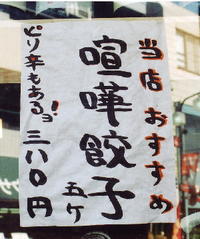 当店おすすめ
喧嘩餃子
五ケ
三八〇円
ピリ辛もあるヨ!